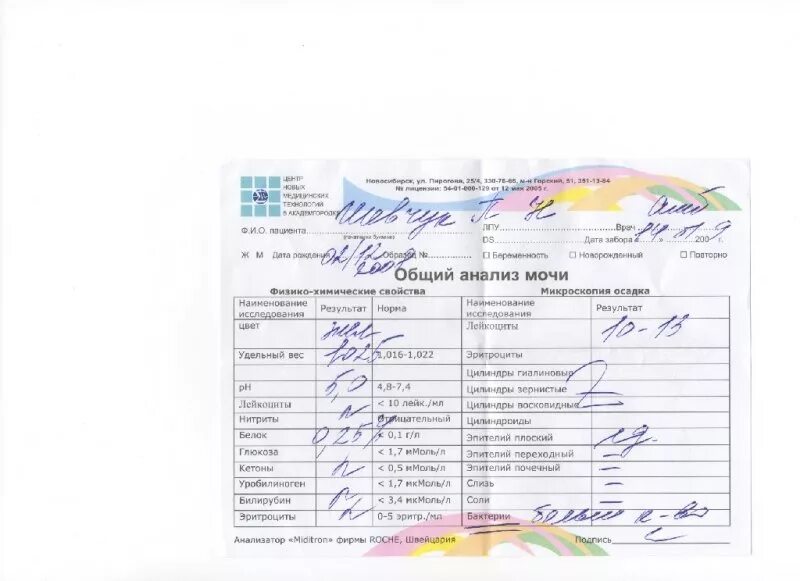 ЦЕНТР
НОВЫХ
МЕДИЦИНСКИХ
ТЕХНОЛОГИЙ
В АКАДЕМГОРОДКЕ
Новосибирск, ул. Пирогова, 25/4, 330-78-66, м-н Горский, 51, 351-13-84
№ лицензии: 54-01-000-129 от 12 мая 2005 г.
Ф.И.О. пациента Шевчук П Н ЛПУ Врач амб
(печатными буквами)
DS Дата забора 200 9 г.
Ж М Дата рождения 02/12 2008 Образец № Беременность Новорожденный Повторно
Общий анализ мочи
Физико-химические свойства Микроскопия осадка
Наименование исследования Результат Норма Наименование исследования Результат
цвет жел Лейкоциты 10-13
Удельный вес 1025 1,016-1,022 Эритроциты
Цилиндры гиалиновые
pH 5,0 4,8-7,4 Цилиндры зернистые
Лейкоциты N < 10 лейк./мл Цилиндры восковидные
Нитриты Отрицательный Цилиндроиды
Белок 0,25 < 0,1 г/л Эпителий плоский ед.
Глюкоза < 1,7 мМоль/л Эпителий переходный —
Кетоны N < 0,5 мМоль/л Эпителий почечный —
Уробилиноген < 1,7 мкМоль/л Слизь —
Билирубин N < 3,4 мкМоль/л Соли —
Эритроциты N 0-5 эритр./мл Бактерии большое к-во
Анализатор «Miditron» фирмы ROCHE, Швейцария Подпись